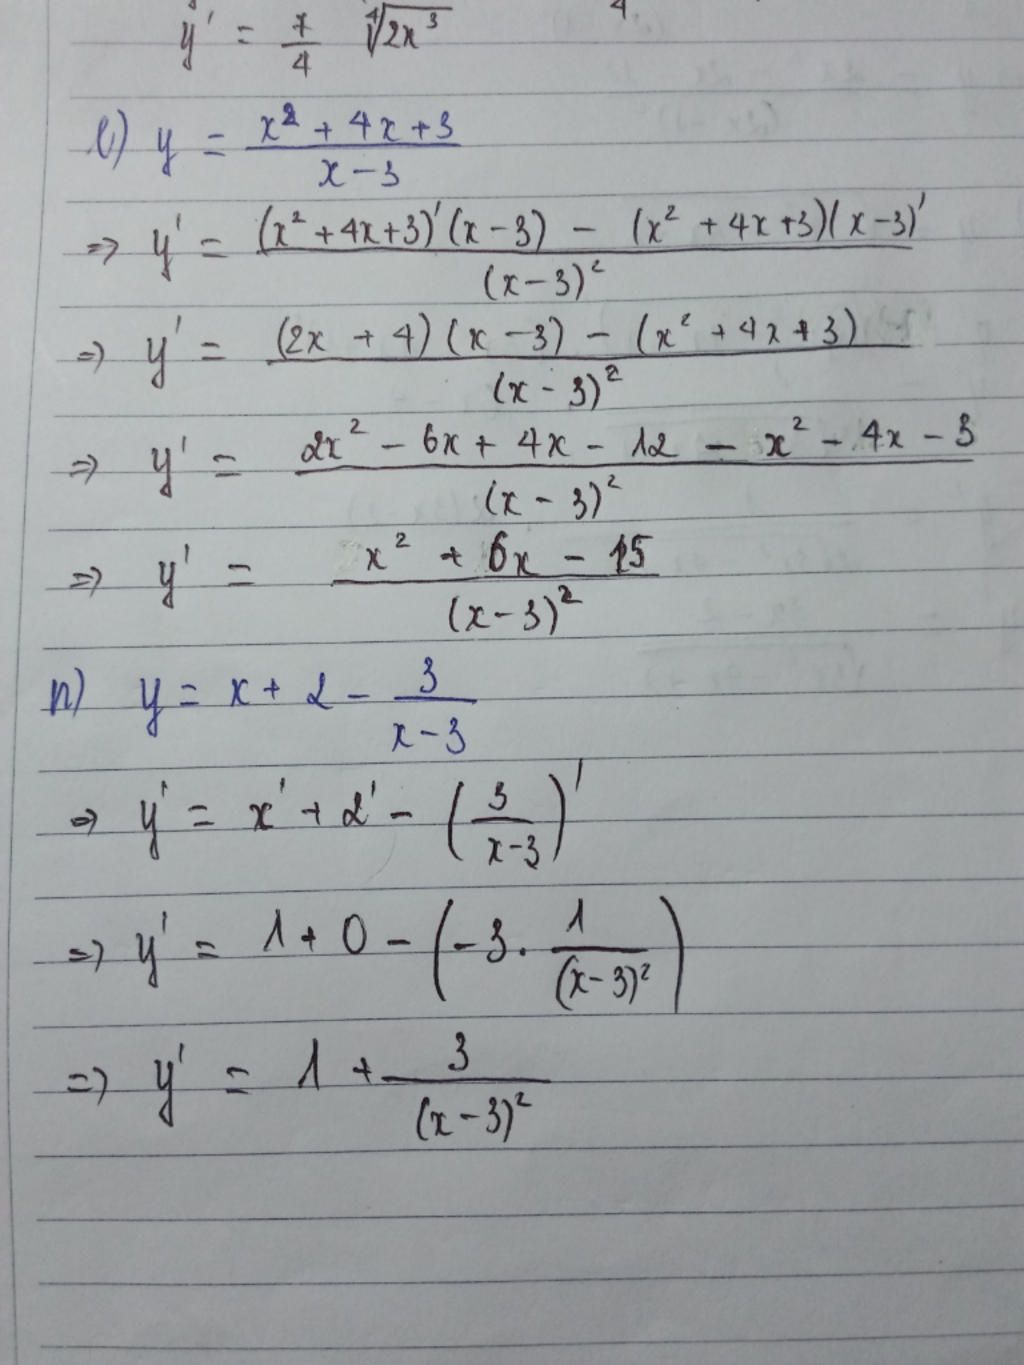 y' = 7/4 ∜(2x³)
l) y = (x² + 4x + 3)/(x - 3)
=> y' = ((x² + 4x + 3)'(x - 3) - (x² + 4x + 3)(x - 3)')/(x - 3)²
=> y' = ((2x + 4)(x - 3) - (x² + 4x + 3))/(x - 3)²
=> y' = (2x² - 6x + 4x - 12 - x² - 4x - 3)/(x - 3)²
=> y' = (x² + 6x - 15)/(x - 3)²
n) y = x + 2 - 3/(x - 3)
=> y' = x' + 2' - (3/(x - 3))'
=> y' = 1 + 0 - (-3 . 1/(x - 3)²)
=> y' = 1 + 3/(x - 3)²